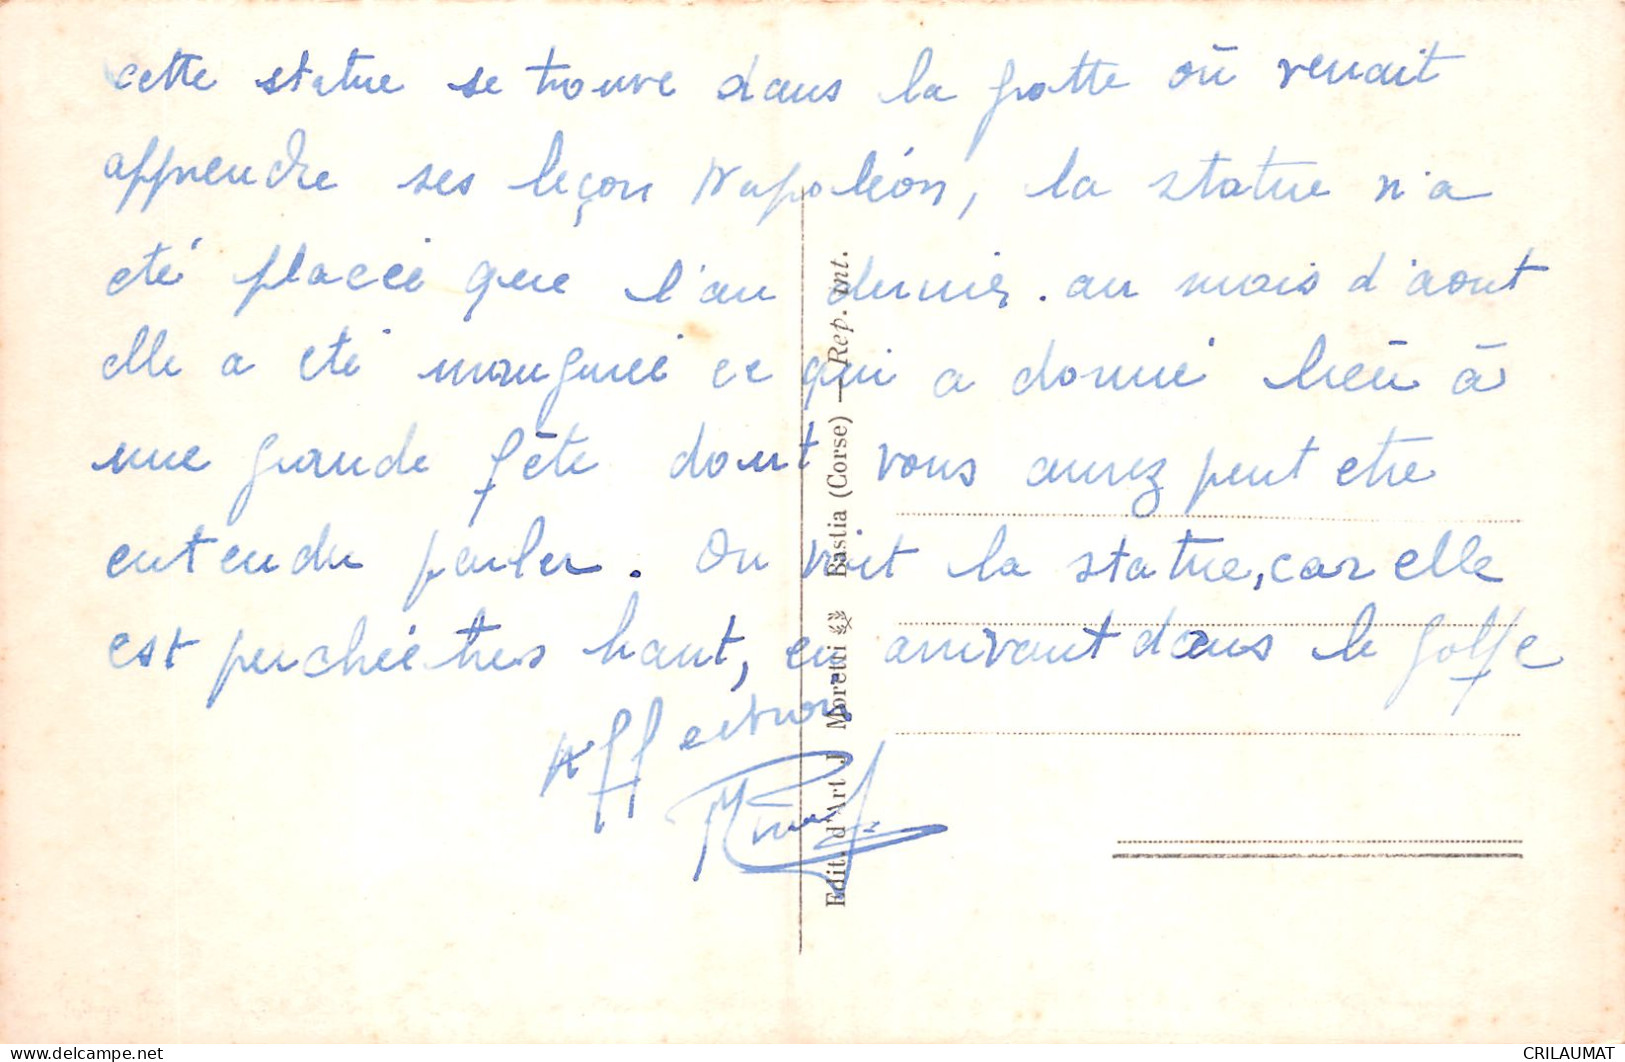 cette statue se trouve dans la grotte où venait
apprendre ses leçon Napoléon, la statue n'a
été placée que l'an dernier. au mois d'aout
elle a été inaugurée ce qui a donné lieu à
une grande fête dont vous aurez peut etre
entendu parler. On voit la statue, car elle
est perchée tres haut, en arrivant dans le golfe
Affection
Edit. d'Art J. Moretti Bastia (Corse) — Rep. int.
CRILAUMAT